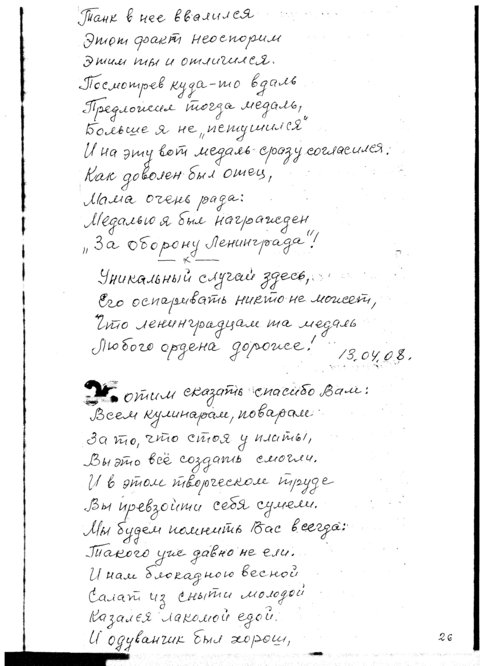 Танк в нее ввалился
Этот факт неоспорим
Этим ты и отличился.
Посмотрев куда-то вдаль
Предложил тогда медаль,
Больше я не „петушился"
И на эту вот медаль сразу согласился.
Как доволен был отец,
Мама очень рада:
Медалью я был награжден
„За оборону Ленинграда"!
— х —
Уникальный случай здесь,
Его оспаривать никто не может,
Что ленинградцам та медаль
Любого ордена дороже!
13.04.08.
Хотим сказать спасибо Вам:
Всем кулинарам, поварам
За то, что стоя у плиты,
Вы это всё создать смогли.
И в этом творческом труде
Вы превзойти себя сумели.
Мы будем помнить Вас всегда:
Такого уже давно не ели.
И нам блокадною весной
Салат из сныти молодой
Казался лакомой едой.
И одуванчик был хорош,
26